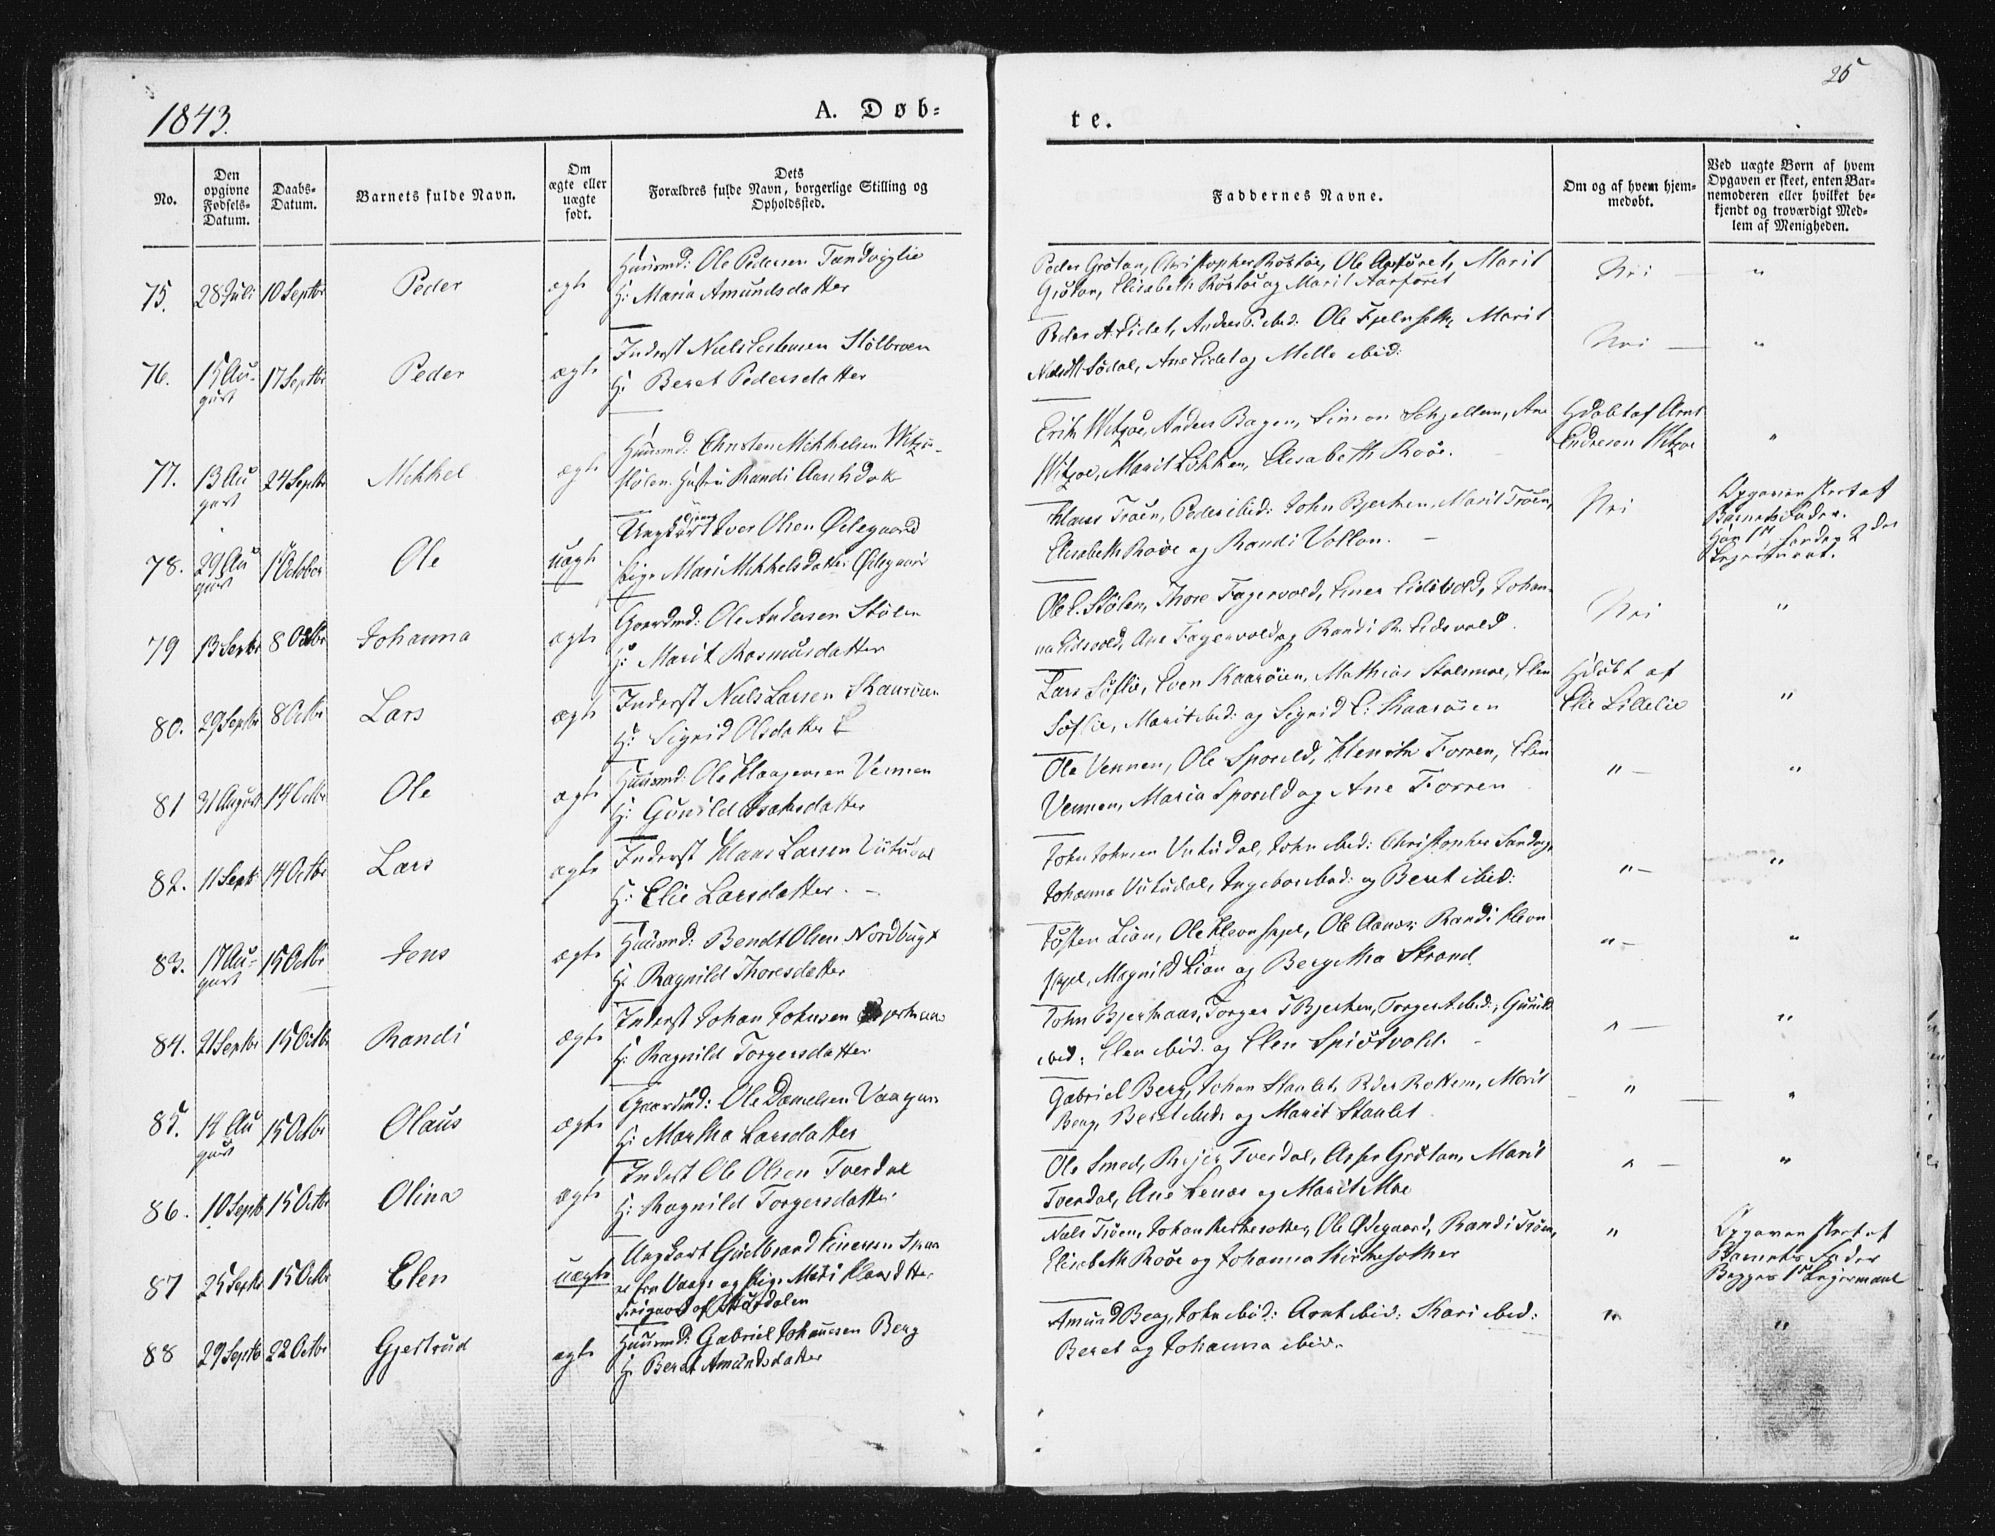 1843.
A. Døb-
te.
25
No.
Den opgivne Fødsels-Datum.
Daabs-Datum.
Barnets fulde Navn.
Om ægte eller uægte født.
Dets Forældres fulde Navn, borgerlige Stilling og Opholdssted.
Faddernes Navne.
Om og af hvem hjemmedøbt.
Ved uægte Børn af hvem Opgaven er skeet, enten Barnemoderen eller hvilket bekjendt og troværdigt Medlem af Menigheden.
75. 28 Juli 10 Septbr Peder ægte
Huusmd: Ole Pedersen
H: Maria Amundsdatter
Peder Grøtan, Christopher Røstøe, Ole Aarføret, Marit
Grøtan, Elisabeth Røstøe og Marit Aarføret
Nei "
76. 15 August 17 Septbr Peder ægte
Inderst Niels Estensen Stølbroen
H: Beret Pedersdatter
Peder A Eidet, Anders P. ibid: Ole Fjelnseth, Marit
Sødal, Ane Eidet og Melle ibid:
Nei "
77. 13 August 24 Septbr Mikkel ægte
Huusmd: Christen Mikkelsen Witzøe-
stølen Hustru Randi
Erik Witzøe, Anders Bagen, Simon Schjellen, Ane
Witzøe, Marit Løkken, Elisabeth Roøe.
Hdøbt af Arnt
Endreson Witzøe "
78. 29 August 1 October Ole uægte
Ungkarl Iver Olsen Ødegaard
Pige Mari Mikkelsdatter Ødegaard
Klaus Trøen, Peder ibid: John Bjerken, Marit Trøen,
Elisabeth Roøe og Randi Vollon.
Nei
Opgaven skeet af
Barnets Fader.
79 13 Septbr 8 Octbr Johanna ægte
Gaardmd: Ole Andersen Stølen
H: Marit Rasmusdatter
Ole E. Stølen, Thore Fagervold, Einer Eidsvold, Johan-
na Eidsvold, Ane Fagervold og Randi R. Eidsvold.
Nei "
80. 29 Septbr 8 Octbr Lars ægte
Inderst Niels Larsen Kaarøien
H: Sigrid Olsdatter
Lars Søflie, Even Kaarøien, Mathias Stolsmoe, Elen
Søflie, Marit ibid: og Sigrid E: Kaarøien
Hdøbt af
Elie Lillelie "
81 31 August 14 Octbr Ole ægte
Huusmd: Ole Haagensen Vennen
H: Gunild Isaksdatter
Ole Vennen, Ole Sporild, Henrik Forren, Elen
Vennen, Maria Sporild og Ane Forren
" "
82. 11 Septbr 14 Octbr Lars ægte
Inderst Klaus Larsen Vutudal
H: Elie Larsdatter.
John Johnsen Vutudal, John ibid: Christopher
Johanna Vutudal, Ingebor ibid: og Beret ibid:
" "
83. 17 August 15 Octbr Jens ægte
Huusmd: Bendt Olsen Nordbugt
H: Ragnild Thoresdatter
Tosten Lian, Ole Klevnhagel, Ole Aanes, Randi Klevn
hagel, Magnild Lian og Bergitha Strand
" "
84. 21 Septbr 15 Octbr Randi ægte
Inderst Johan Johnsen
H: Ragnild Torgersdatter
John Bjerkaas, Torger T Bjerken, Torger ibid:, Gunild
ibid: Elen ibid. og Elen Spiøtvold.
" "
85. 14 August 15 Octbr Olaus ægte
Gaardmd: Ole Danielsen Vaagan
H: Martha Larsdatter
Gabriel Berg, Johan Stamlet, Peder Rottem, Marit
Berg, Beret ibid: og Marit Stamlet.
" "
86. 10 Septbr 15 Octbr Olina ægte
Inderst Ole Olsen Tverdal
H: Ragnild Torgersdatter
Ole Smed, Tverdal, Grøtan, Marit
Tverdal, Ane Lenæs og Marit Moe
" "
87 25 Septbr 15 Octbr Elen uægte
Ungkarl Gudbrand Einersen
fra Vaage og Pige Mari Klausdtter
Niels Trøen, Johan Kirkesetter, Ole Ødegaard, Randi Trøen,
Elisabeth Roøe og Johanna Kirkesetter
"
Opgaven skeet af
Barnets Fader
Begges 1st Leiermaal
88 29 Septbr 22 Octbr Gjertrud ægte
Huusmd: Gabriel Johansen Berg
H: Beret Amundsdatter
Amund Berg, John ibid: Arnt ibid: Kari ibid:
Beret og Johanna ibid.
" "